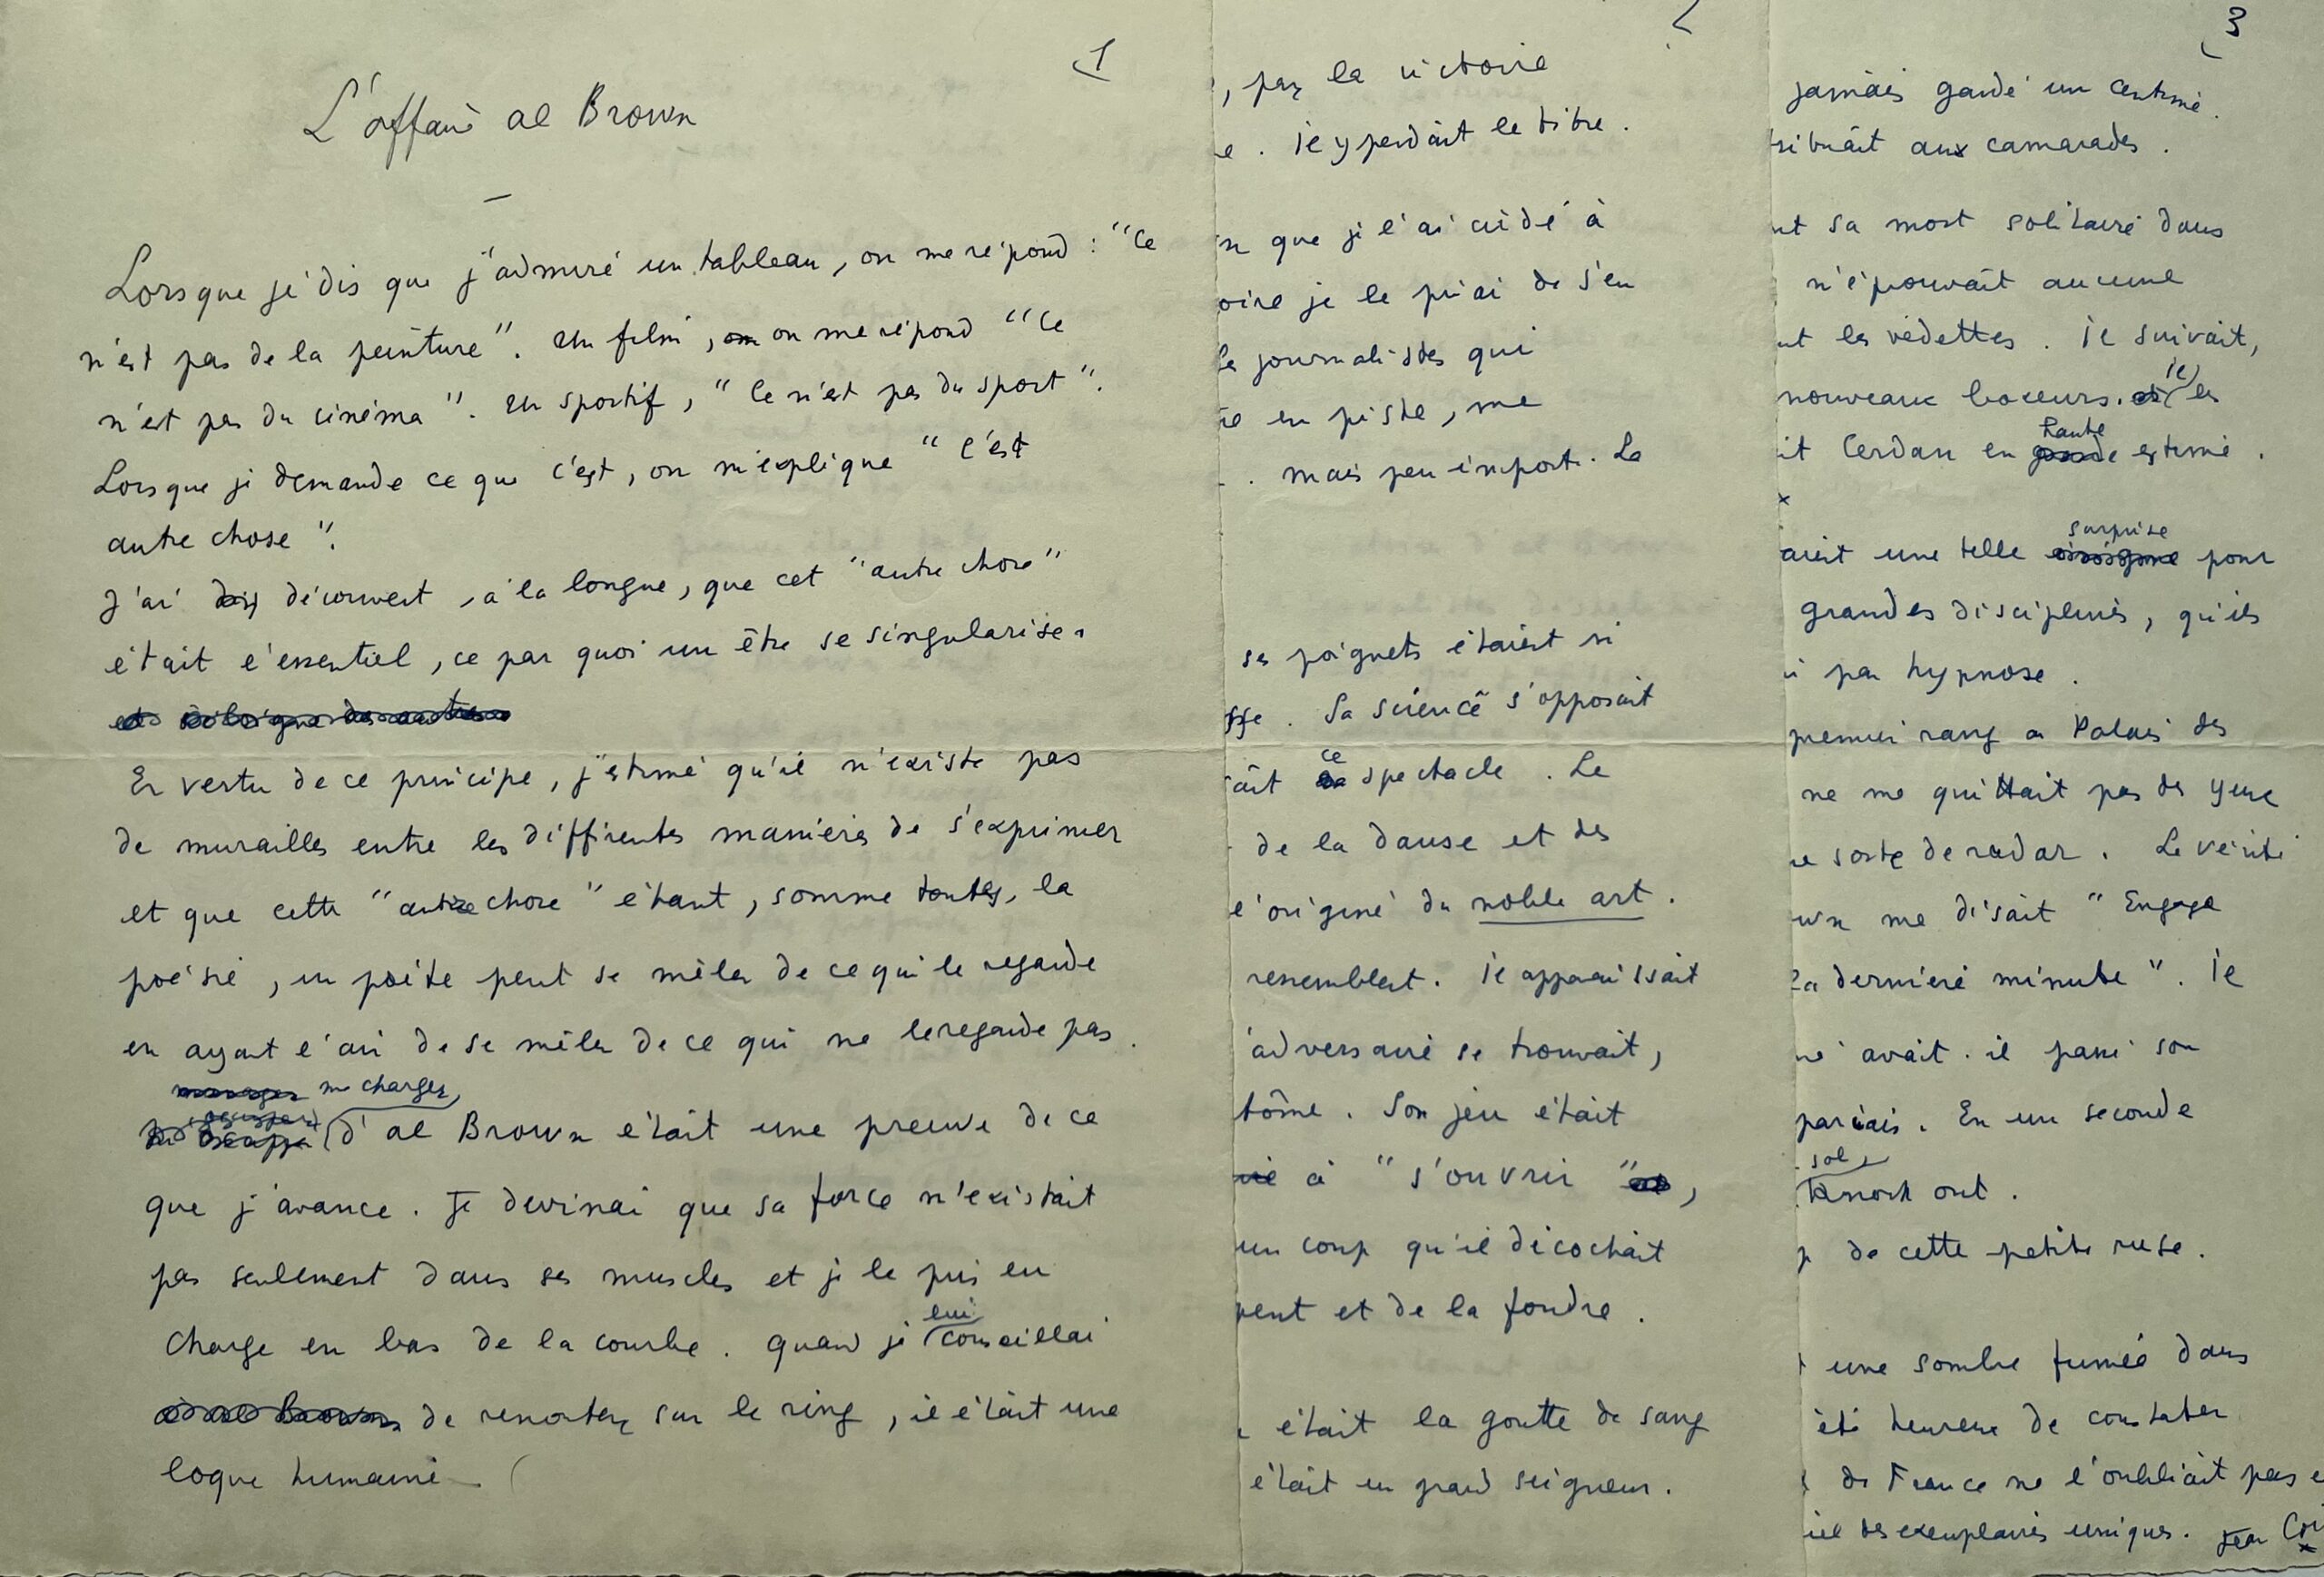 1
L'affaire al Brown
Lorsque je dis que j'admire un tableau, on me répond : "Ce
n'est pas de la peinture". Un film, on me répond "Ce
n'est pas du cinéma". Un sportif, "Ce n'est pas du sport".
Lorsque je demande ce que c'est, on m'explique "C'est
autre chose".
J'ai découvert, à la longue, que cet "autre chose"
était l'essentiel, ce par quoi un être se singularise.
En vertu de ce principe, j'estime qu'il n'existe pas
de murailles entre les différentes manières de s'exprimer
et que cette "autre chose" étant, somme toute, la
poésie, un poète peut se mêler de ce qui le regarde
en ayant l'air de se mêler de ce qui ne le regarde pas.
me charger
d'al Brown était une preuve de ce
que j'avance. Je devinai que sa force n'existait
pas seulement dans ses muscles et je le pris en
charge en bas de la courbe. Quand je lui conseillai
de remonter sur le ring, il était une
loque humaine
2
, par la victoire
e. Il y perdait le titre.
que je l'ai aidé à
oire je le priai de s'en
journalistes qui
en piste, me
. mais peu importe. Le
ses poignets étaient si
sse. Sa science s'opposait
ait ce spectacle. Le
de la danse et des
l'origine du noble art.
ressemblent. Il apparaissait
adversaire se trouvait,
tôme. Son jeu était
à "s'ouvrir",
un coup qu'il décochait
pent et de la foudre.
était la goutte de sang
était un grand seigneur.
3
jamais gardé un centime.
tribuait aux camarades.
nt sa mort solitaire dans
n'éprouvait aucune
nt les vedettes. Il suivait,
nouveaux boxeurs. il les
it Cerdan en haute estime.
x
aient une telle surprise pour
grandes disciplines, qu'ils
par hypnose.
premier rang au Palais des
ne me quittait pas des yeux
ne sorte de radar. La vérité
wn me disait "Engage
la dernière minute". Il
avait. il passe son
pariais. En une seconde
sol,
Knock out.
de cette petite ruse.
une sombre fumée dans
été heureux de constater
de France ne l'oubliait pas e
des exemplaires uniques. Jean Co
x